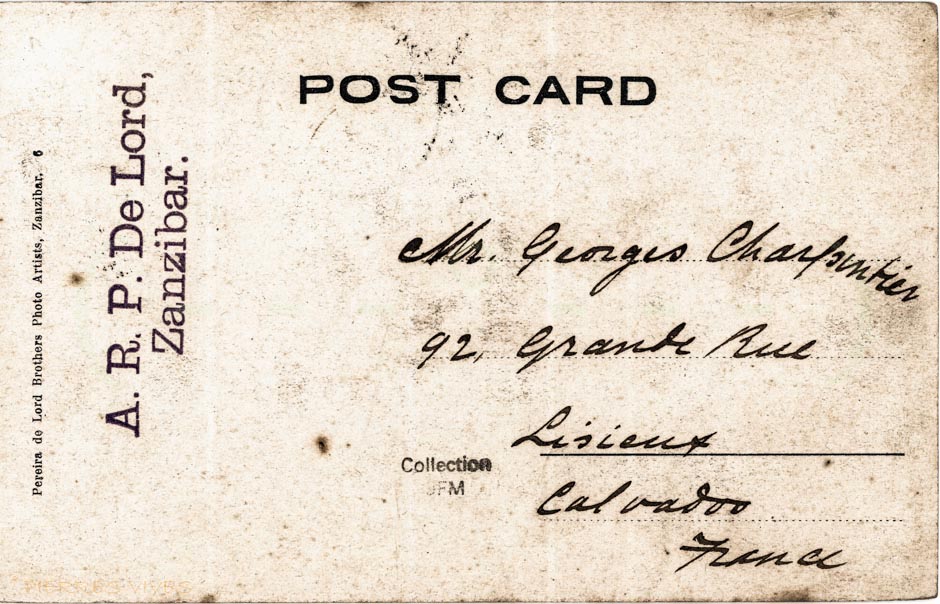 POST CARD
A. R. P. De Lord,
Zanzibar.
Pereira de Lord Brothers Photo Artists, Zanzibar. 6
Mr. Georges Charpentier
92, Grande Rue
Lisieux
Calvados
France
Collection
JFM